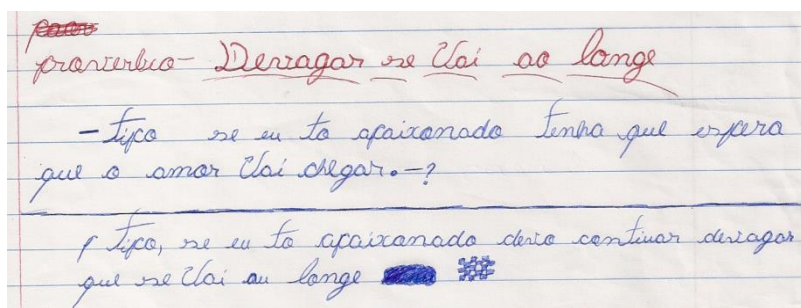 proverbio - Devagar se Vai ao longe
- tipo se eu to apaixonado tenha que espera
que o amor Vai chegar. - ?
tipo, se eu to apaixonado devo continuar devagar
que se Vai au longe